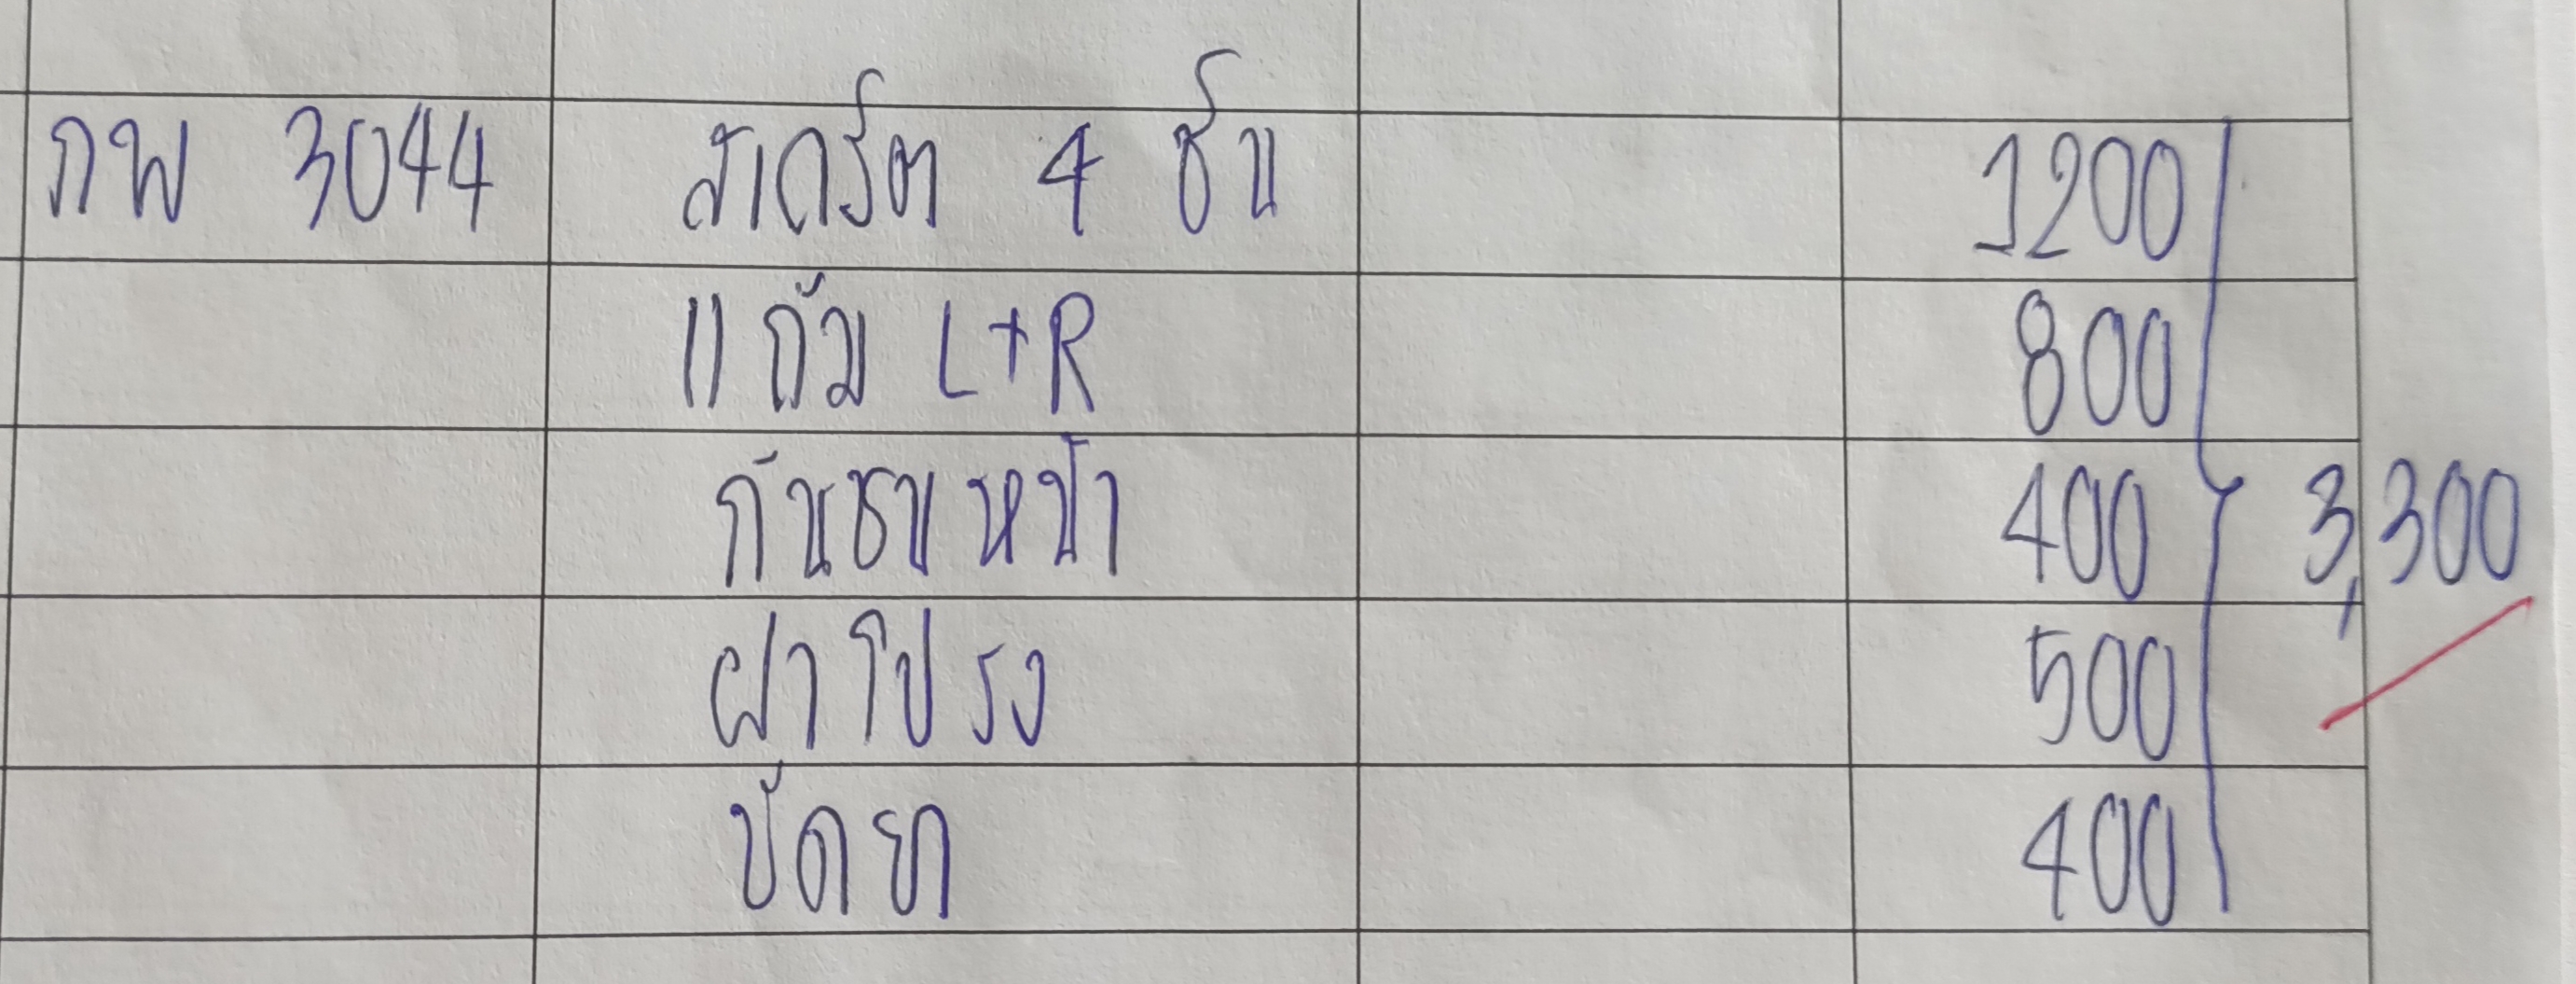 กพ 3044 สเกิร์ต 4 ชิ้น 1200
แก้ม L+R 800
กันชนหน้า 400 3,300
ฝาโปรง 500
ขัดยา 400